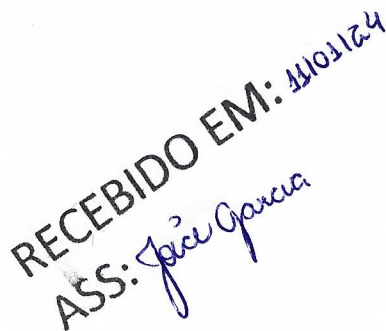 RECEBIDO EM: 11/01/24
ASS: Joice Garcia